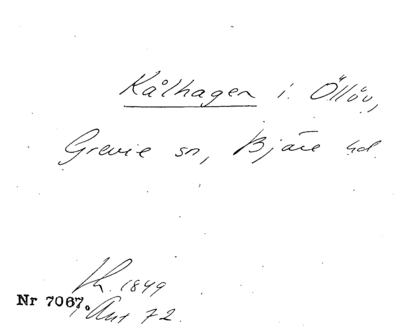 Kålhagen i Öllöv,
Grevie sn, Bjäre hd.
1849
Nr 7067.
72.